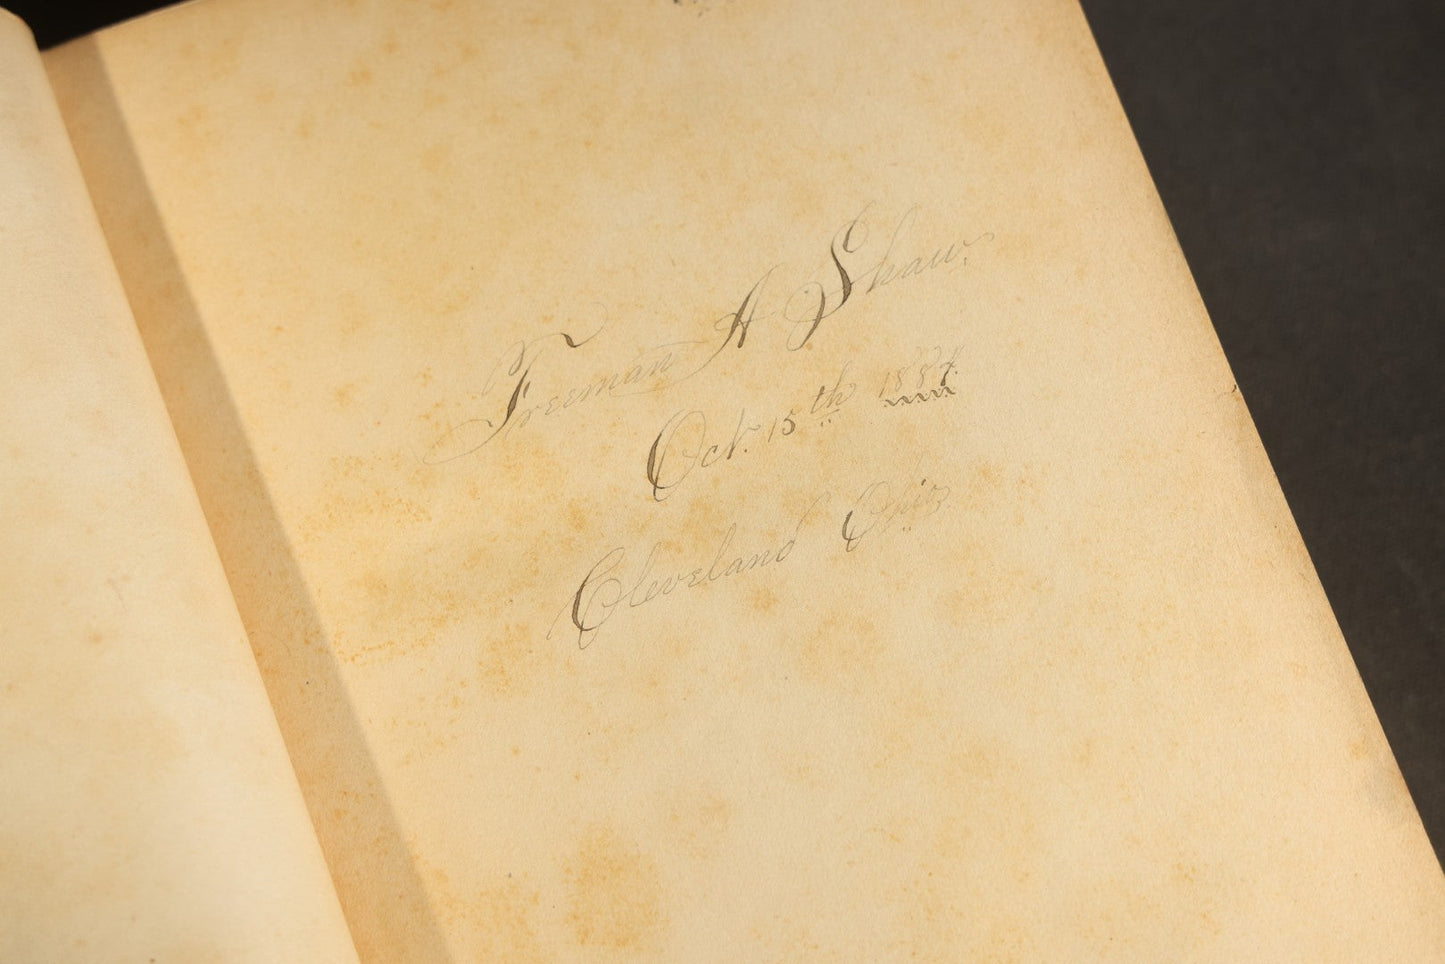 Freeman A Shaw.
Oct. 15th 1884.
Cleveland Ohio.